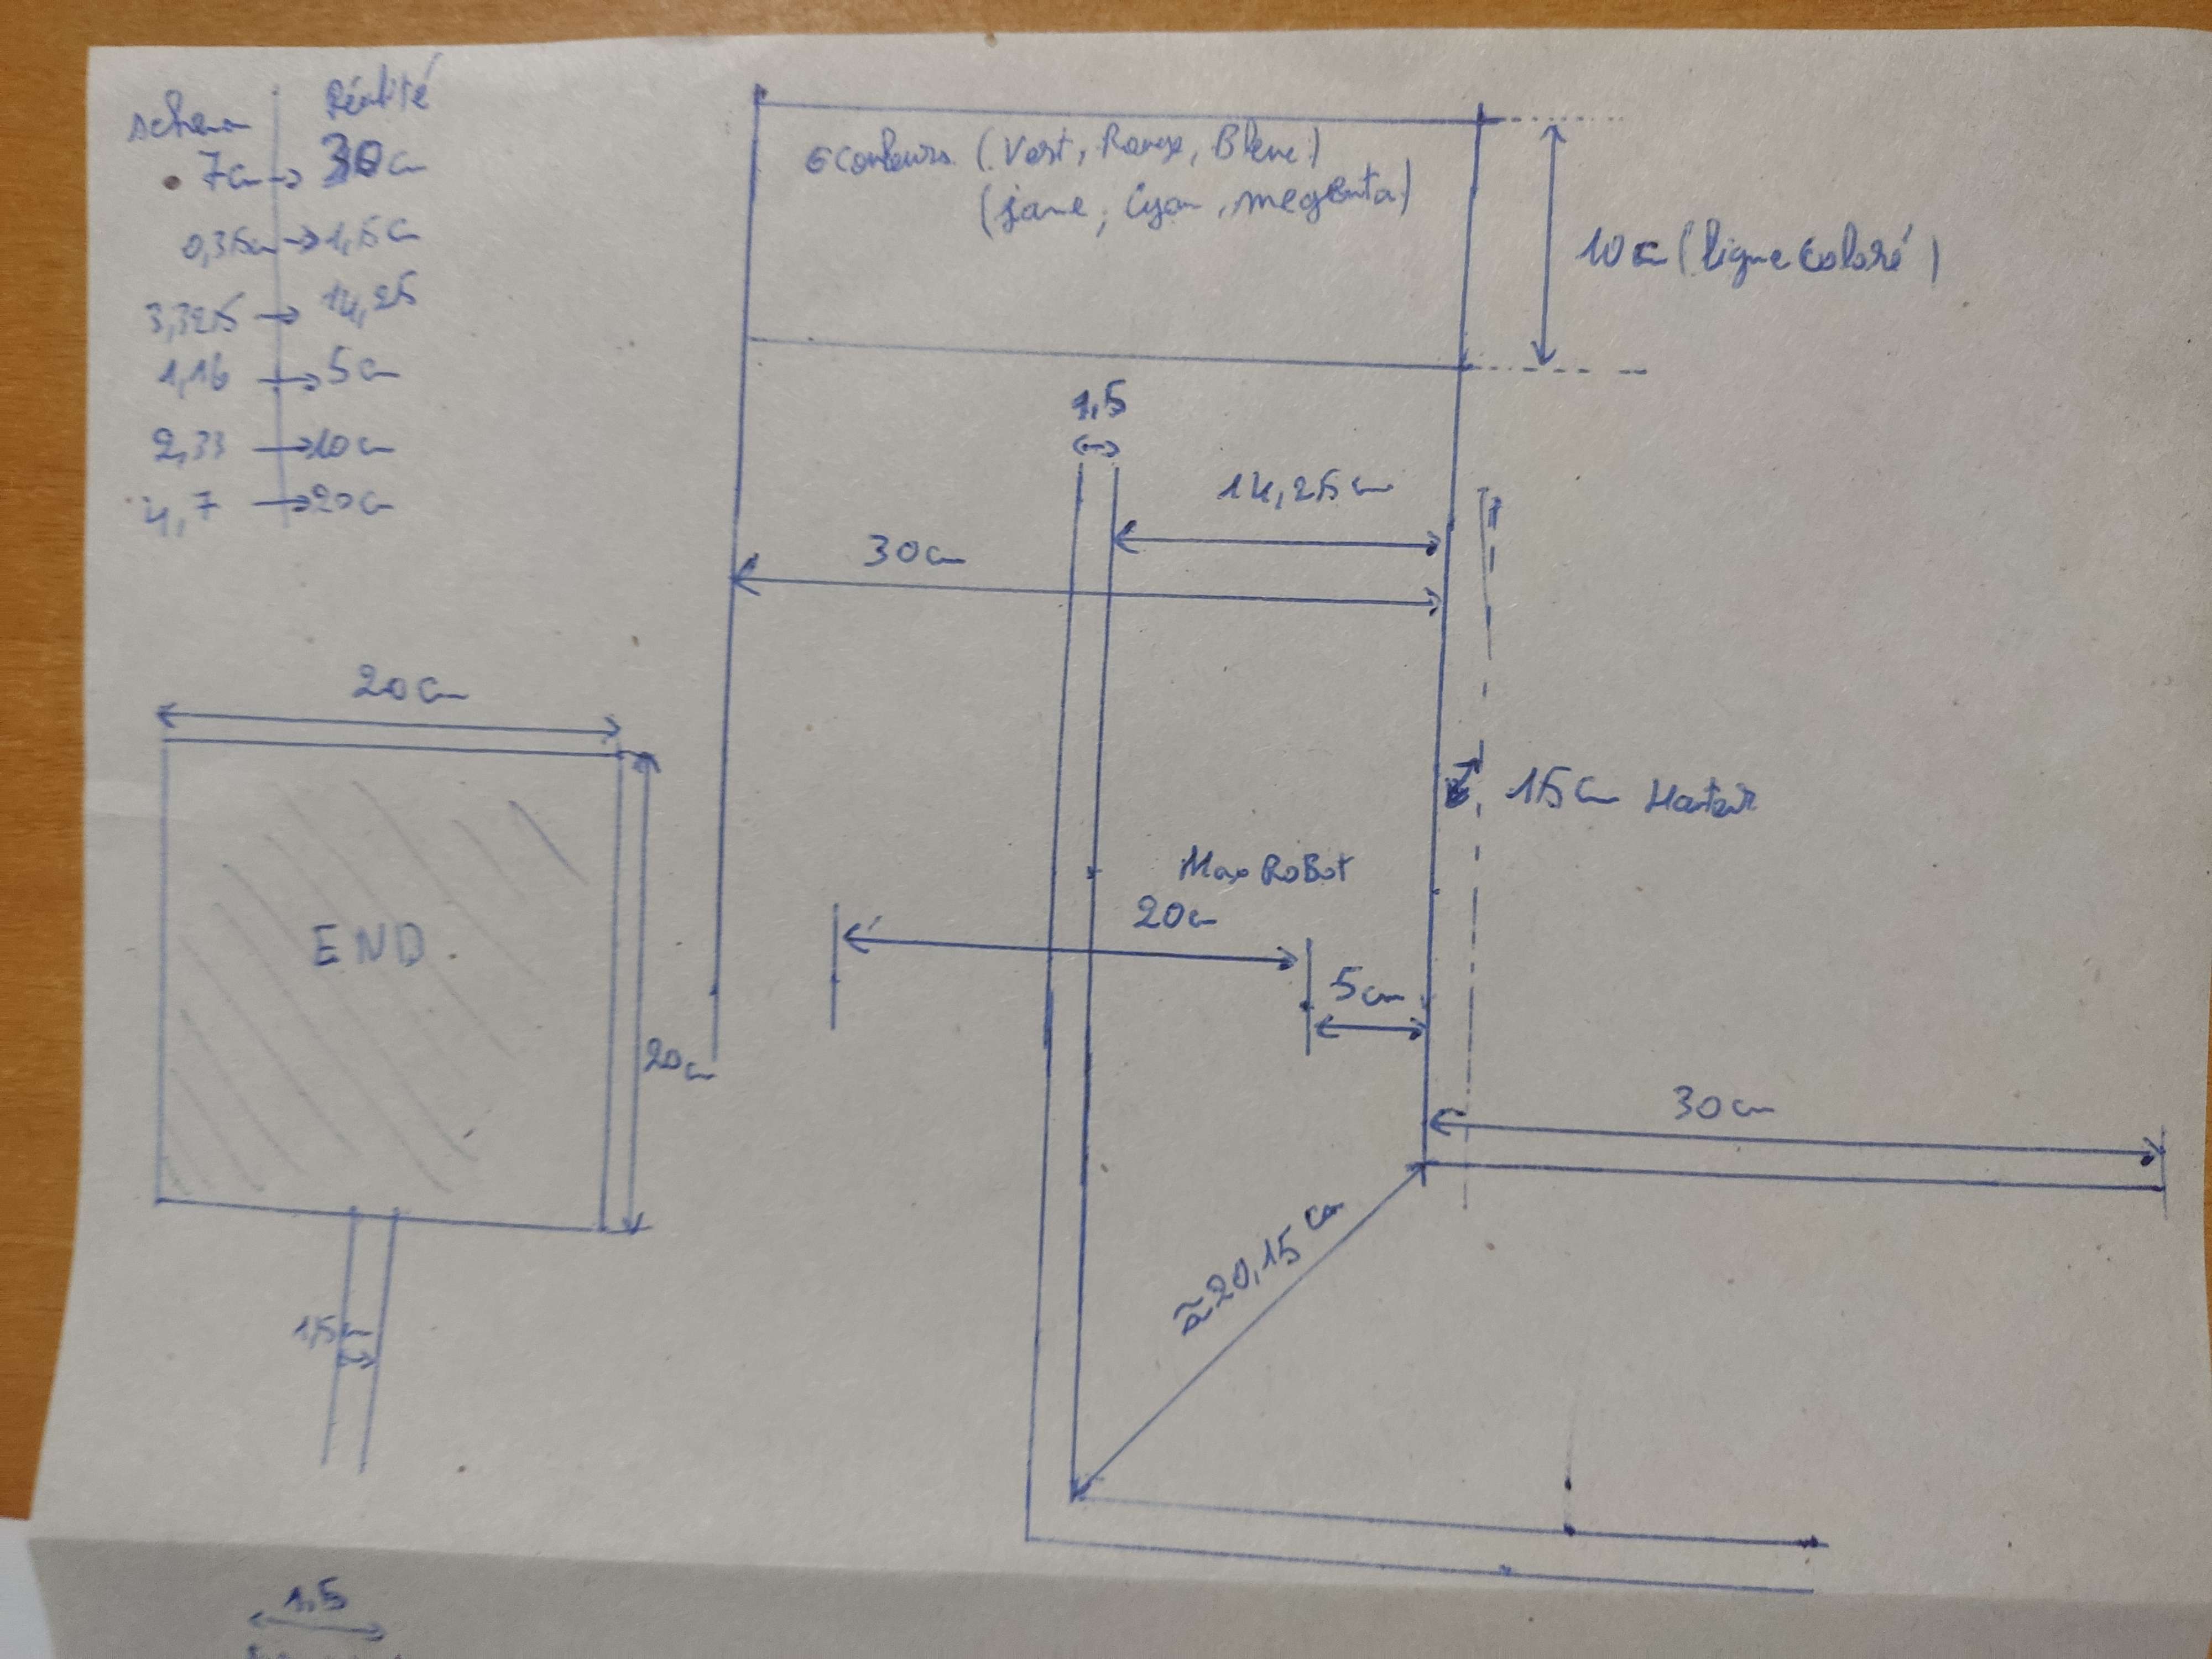 schema Réalité
7cm → 30cm
0,35cm → 1,5cm
3,325 → 14,25
1,16 → 5cm
2,33 → 10cm
4,7 → 20cm
6 couleurs (Vert, Rouge, Bleue)
(jane, Cyan, megenta)
10 cm (ligne coloré)
1,5
14,25cm
30cm
20cm
15cm Hauteur
Max RoBot
20cm
END.
5cm
20cm
30cm
≃20,15 cm
1,5cm
1.5